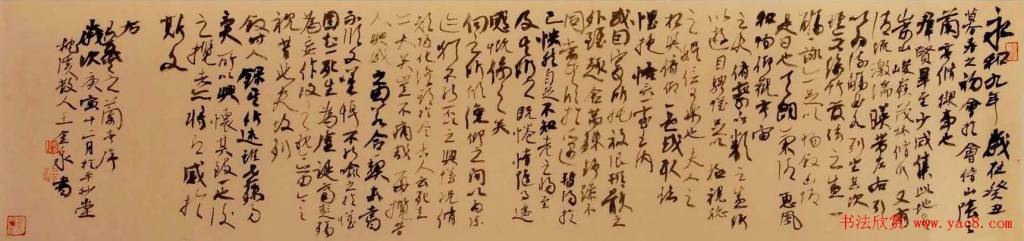 永和九年歲在癸丑
暮春之初會於會稽山陰之
蘭亭脩稧事也
群賢畢至少長咸集此地有
崇山峻領茂林脩竹又有
清流激湍暎帶左右引
以為流觴曲水列坐其次
雖無絲竹管弦之盛一
觴一詠亦足以暢敘幽情
是日也天朗氣清惠風
和暢仰觀宇宙
之大俯察品類之盛所
以遊目騁懷足以極視聽
之娛信可樂也夫人之
相與俯仰一世或取諸
懷抱悟言一室之內
或因寄所託放浪形骸之
外雖趣舍萬殊靜躁不
同當其欣於所遇蹔得於
己怏然自足不知老之將至
及其所之既惓情隨事遷
感慨係之矣
向之所欣俛仰之間以為陳
迹猶不能不以之興懷況脩
短隨化終期於盡古人云死生
亦大矣豈不痛哉每攬昔
人興感之由若合一契未嘗
不臨文嗟悼不能喻之於懷
固知一死生為虛誕齊彭殤
為妄作後之視今亦由今之
視昔悲夫故列
敘時人錄其所述雖世殊事
異所以興懷其致一也後
之攬者亦將有感於
斯文
右
王羲之蘭亭序
歲次庚寅十一月於半抄堂
散人王金泉書
书法欣赏
www.yac8.com